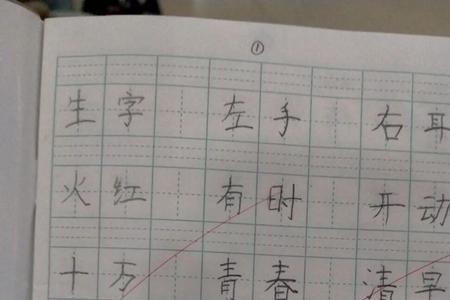 ①
生字 左手 右耳
火红 有时 开动
十万 青春 清早